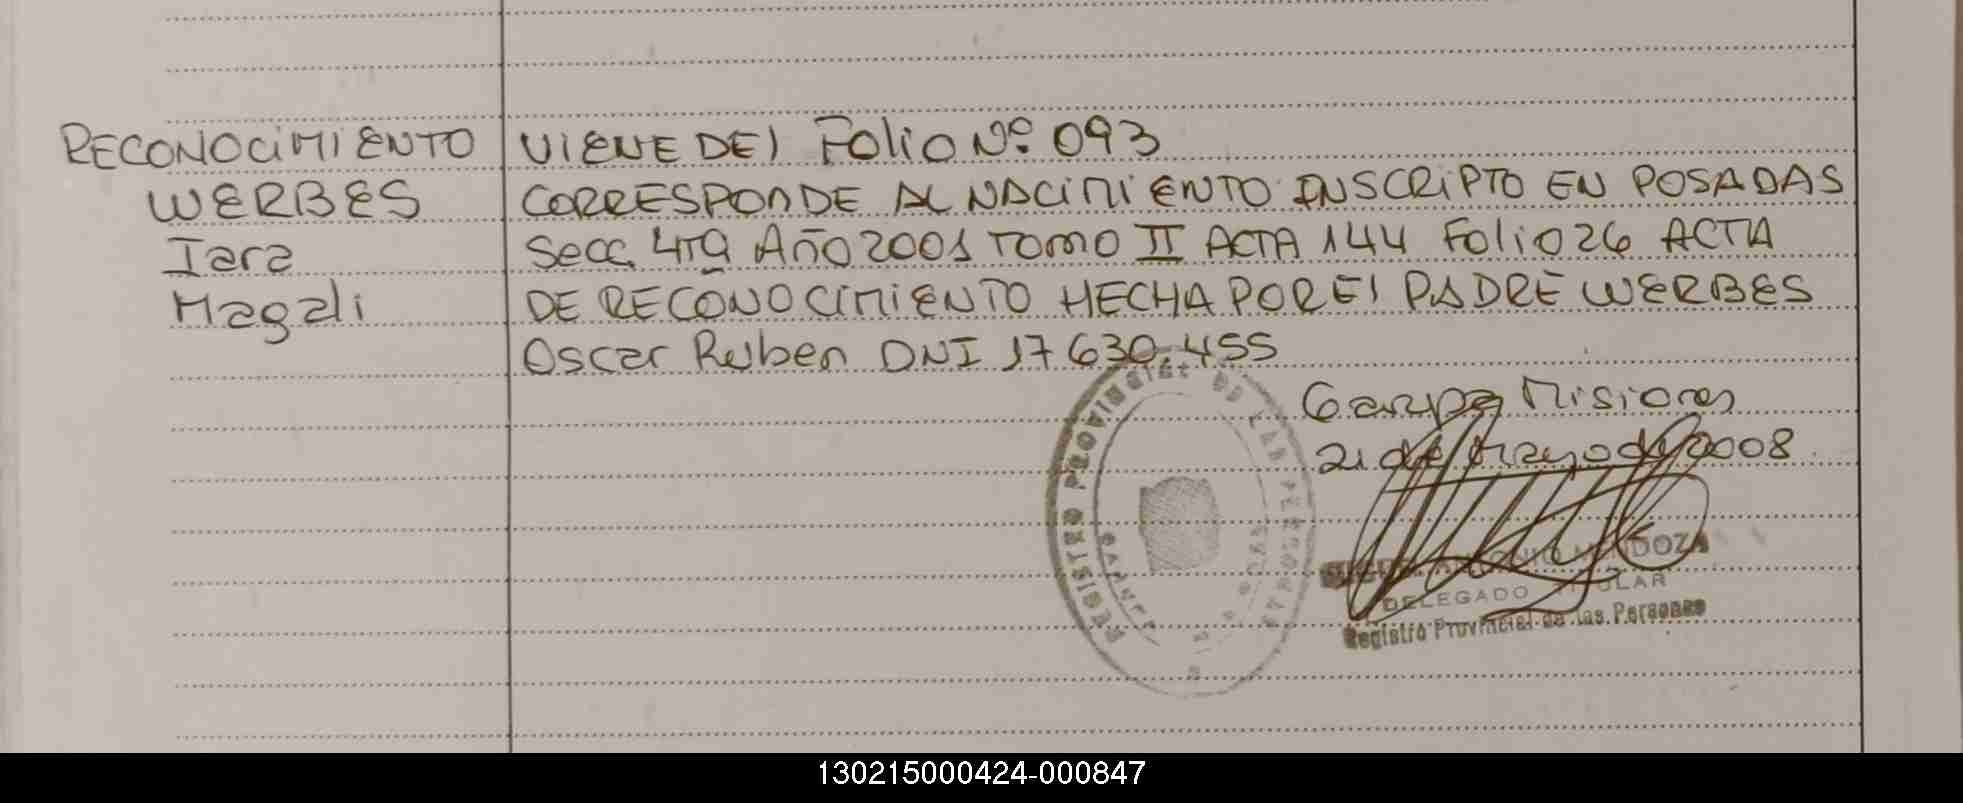 RECONOCIMIENTO
WERBES
Iara
Magali
VIENE DEl Folio Nº 093
CORRESPONDE AL NACIMIENTO INSCRIPTO EN POSADAS
Secc. 4TA AÑO 2001 TOMO II ACTA 144 Folio 26 ACTA
DE RECONOCIMIENTO HECHA POR El PADRE WERBES
Oscar Ruben DNI 17 630.455
Garupa Misiones
21 de mayo de 2008
REGISTRO PROVINCIAL DE LAS PERSONAS
GARUPA
ANTONIO MENDOZA
DELEGADO TITULAR
Registro Provincial de las Personas
130215000424-000847